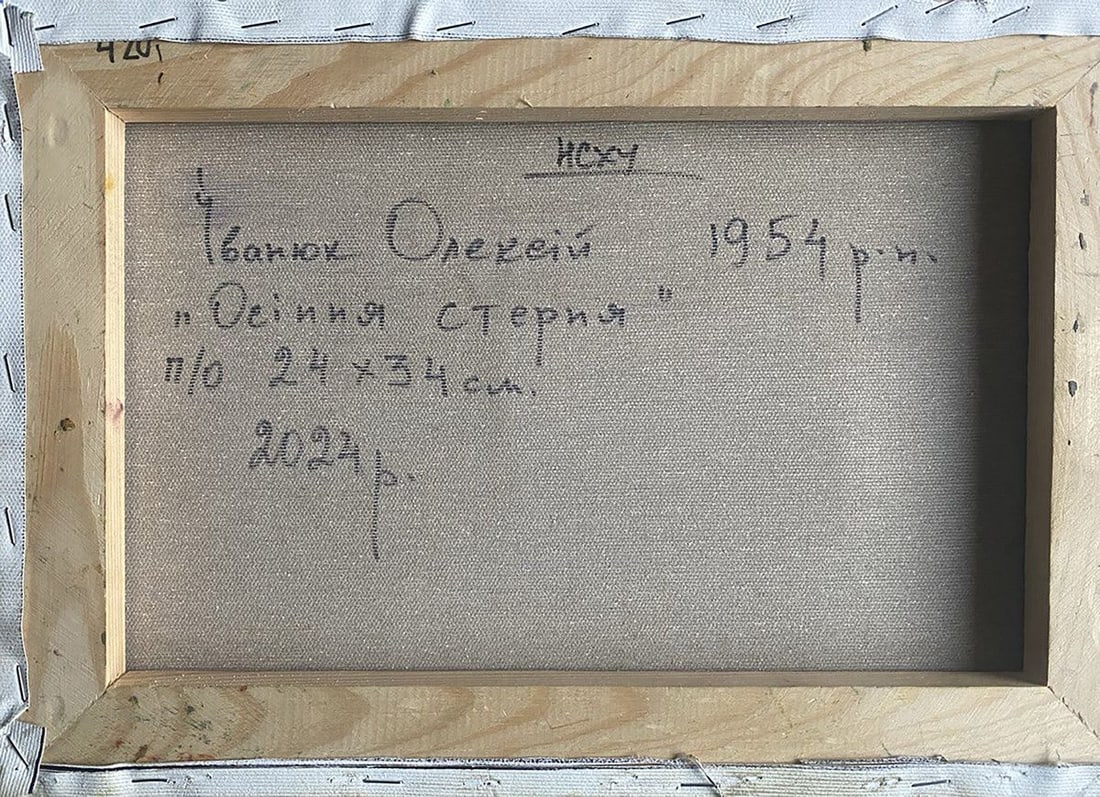 НСХУ
Іванюк Олексій 1954 р.н.
„Осіння стерня"
п/о 24 x 34 см.
2024 р.